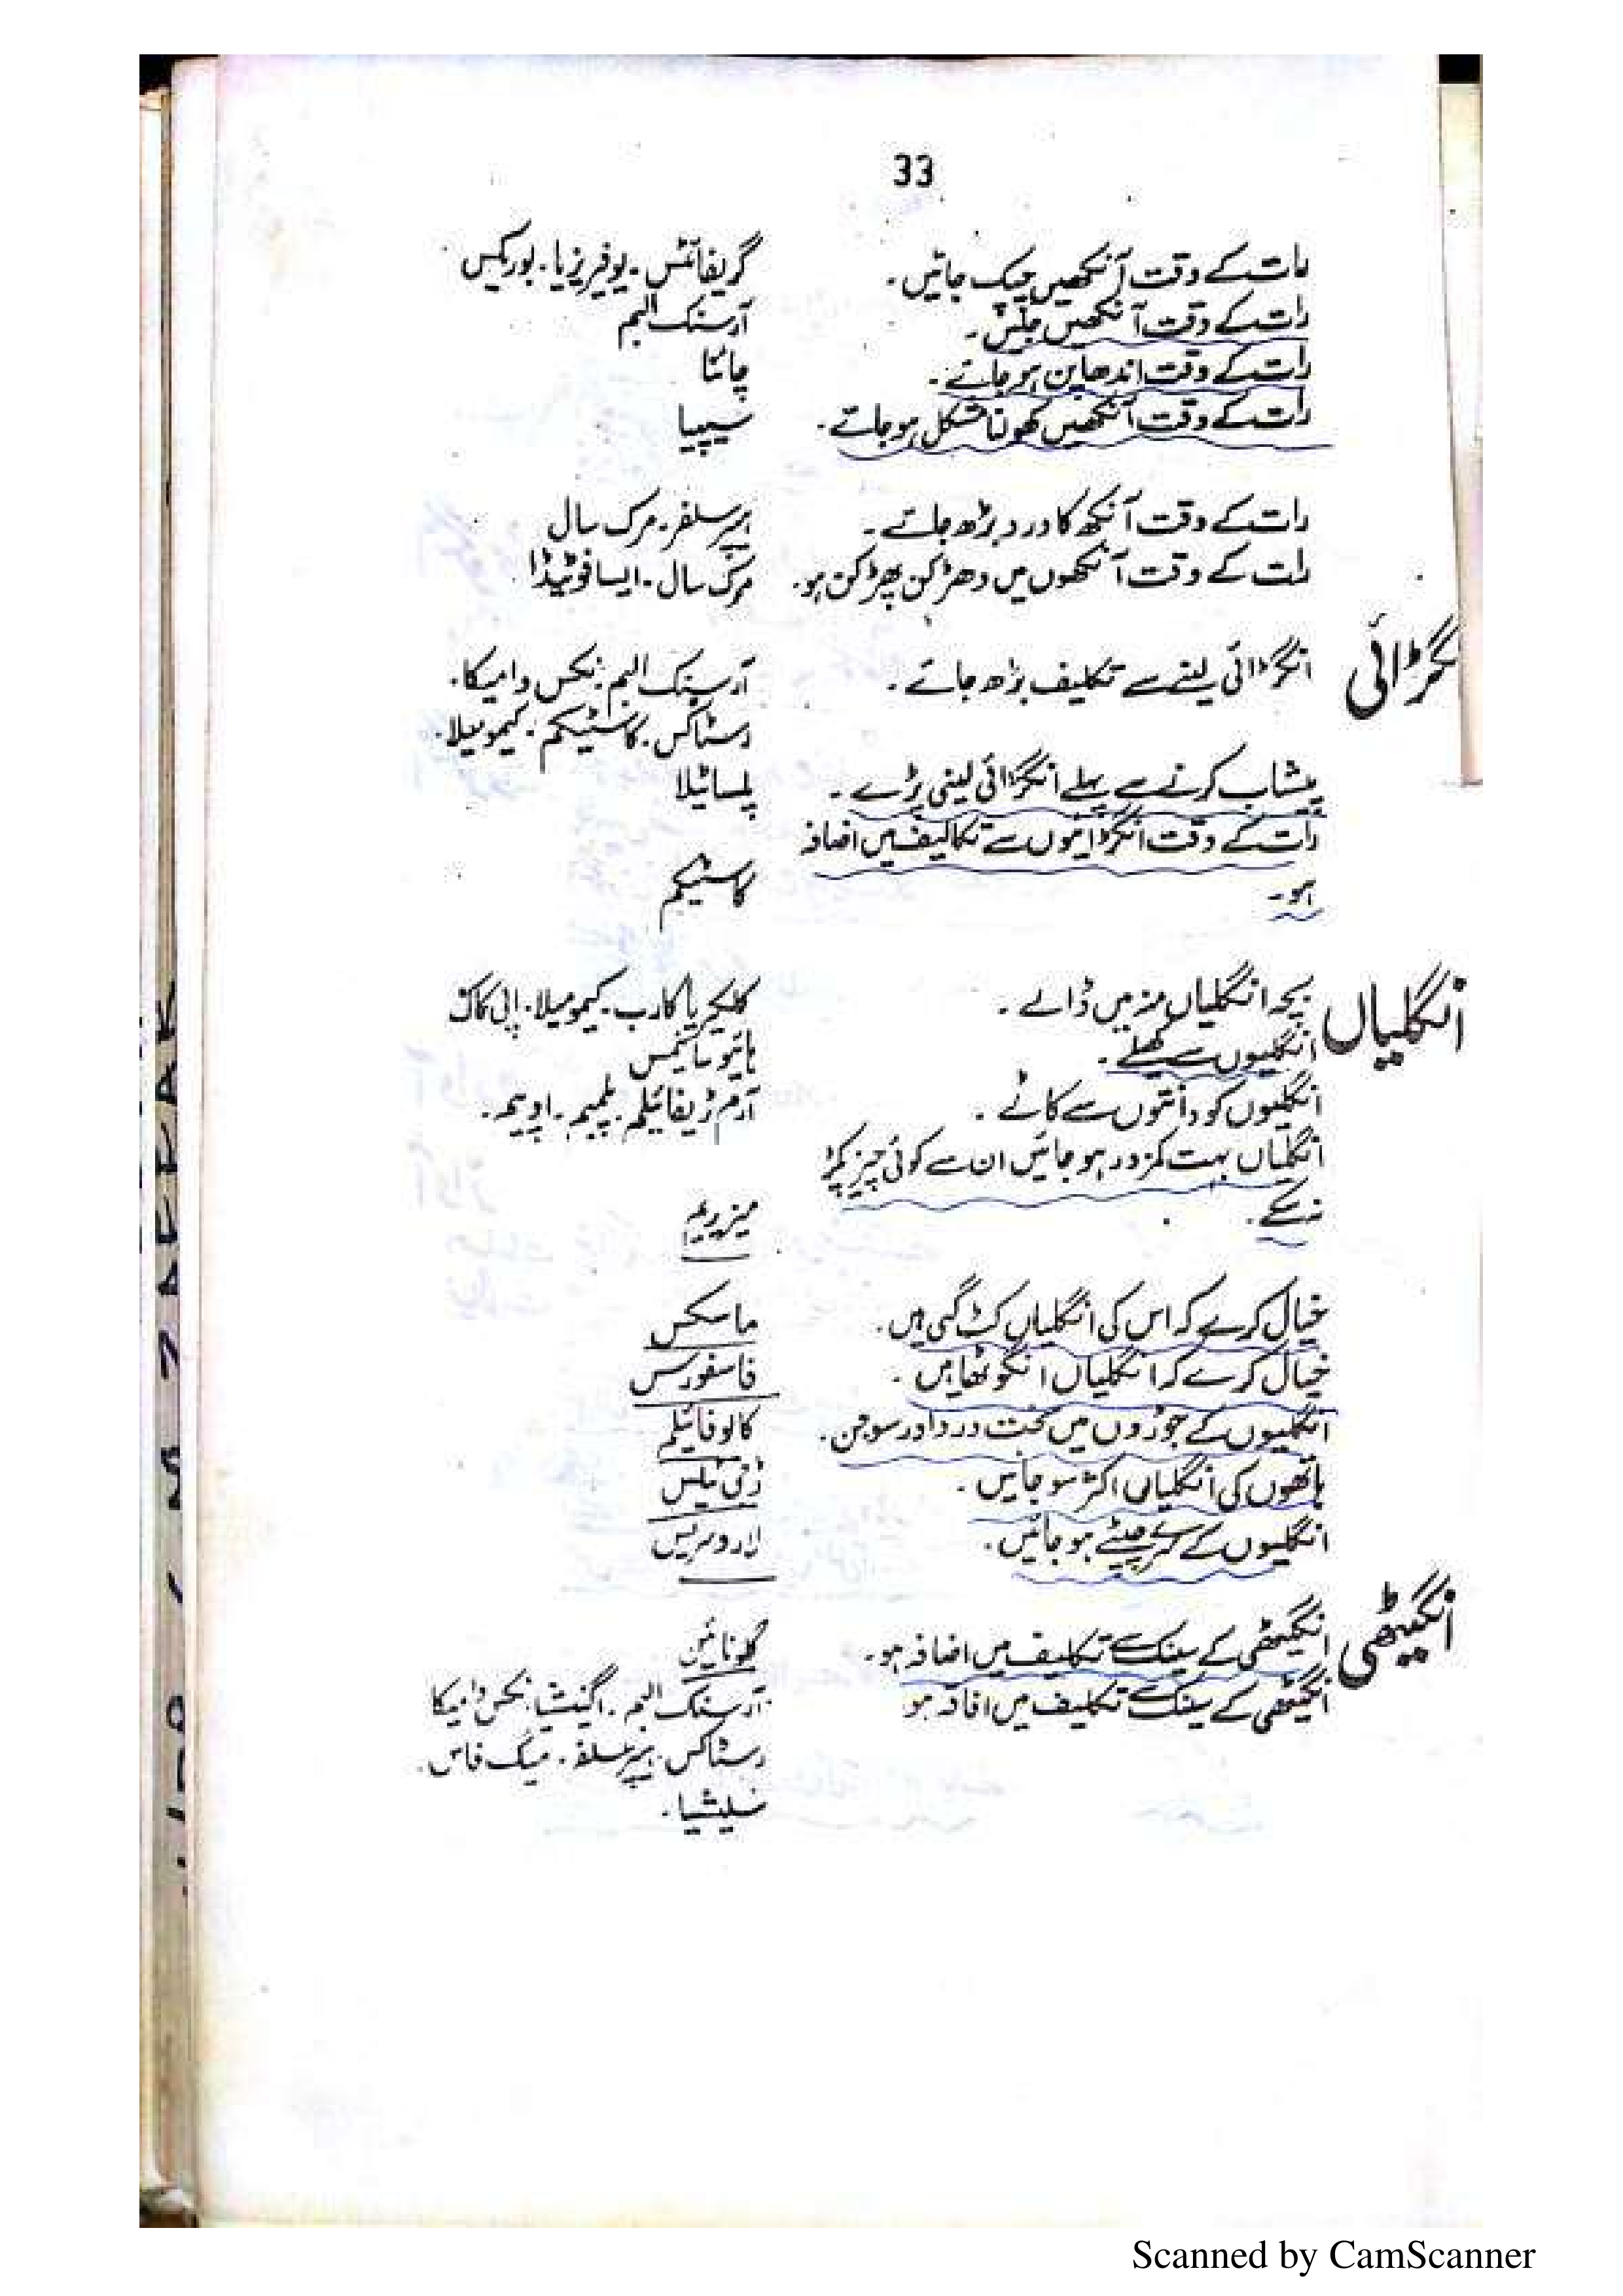 33
رات کے وقت آنکھیں چپک جائیں۔ گریفائٹس۔ یوفریزیا۔ بوریکس
رات کے وقت آنکھیں جلیں۔ آرسنک البم
رات کے وقت اندھا پن ہو جائے۔ چائنا
رات کے وقت آنکھیں کھولنا مشکل ہو جائے۔ سیپیا
رات کے وقت آنکھ کا درد بڑھ جائے۔ ہیپر سلفر۔ مرک سال
رات کے وقت آنکھوں میں دھڑکن پھڑکن ہو۔ مرک سال۔ ایسافوٹیڈا
گڑائی انگڑائی لینے سے تکلیف بڑھ جائے۔ آرسنک البم۔ نکس وامیکا۔
رسٹاکس۔ کاسٹیکم۔ کیمومیلا۔
پیشاب کرنے سے پہلے انگڑائی لینی پڑے۔ پلساٹیلا
رات کے وقت انگڑائیوں سے تکالیف میں اضافہ
ہو۔ کاسٹیکم
انگلیاں بچہ انگلیاں منہ میں ڈالے۔ کلکیریا کارب۔ کیمومیلا۔ اپی کاک
انگلیوں سے کھیلے۔ ہائیوسائمس
انگلیوں کو دانتوں سے کاٹے۔ آرم ٹریفائیلم۔ پلمبم۔ اوپیم۔
انگلیاں بہت کمزور ہو جائیں ان سے کوئی چیز پکڑ
نہ سکے۔ میزریم
خیال کرے کہ اس کی انگلیاں کٹ گئی ہیں۔ ماسکس
خیال کرے کہ انگلیاں انگوٹھا ہیں۔ فاسفورس
انگلیوں کے جوڑوں میں سخت درد اور سوجن۔ کالوفائیلم
ہاتھوں کی انگلیاں اکثر سو جائیں۔ ڈجی ٹیلس
انگلیوں کے سرے چپٹے ہو جائیں۔ لاروسریس
انگیٹھی انگیٹھی کے سینک سے تکلیف میں اضافہ ہو۔ گلونائین
انگیٹھی کے سینک سے تکلیف میں افاقہ ہو آرسنک البم۔ اگنیشیا۔ نکس وامیکا
رسٹاکس۔ ہیپر سلفر۔ میگ فاس۔
سلیشیا۔
Scanned by CamScanner